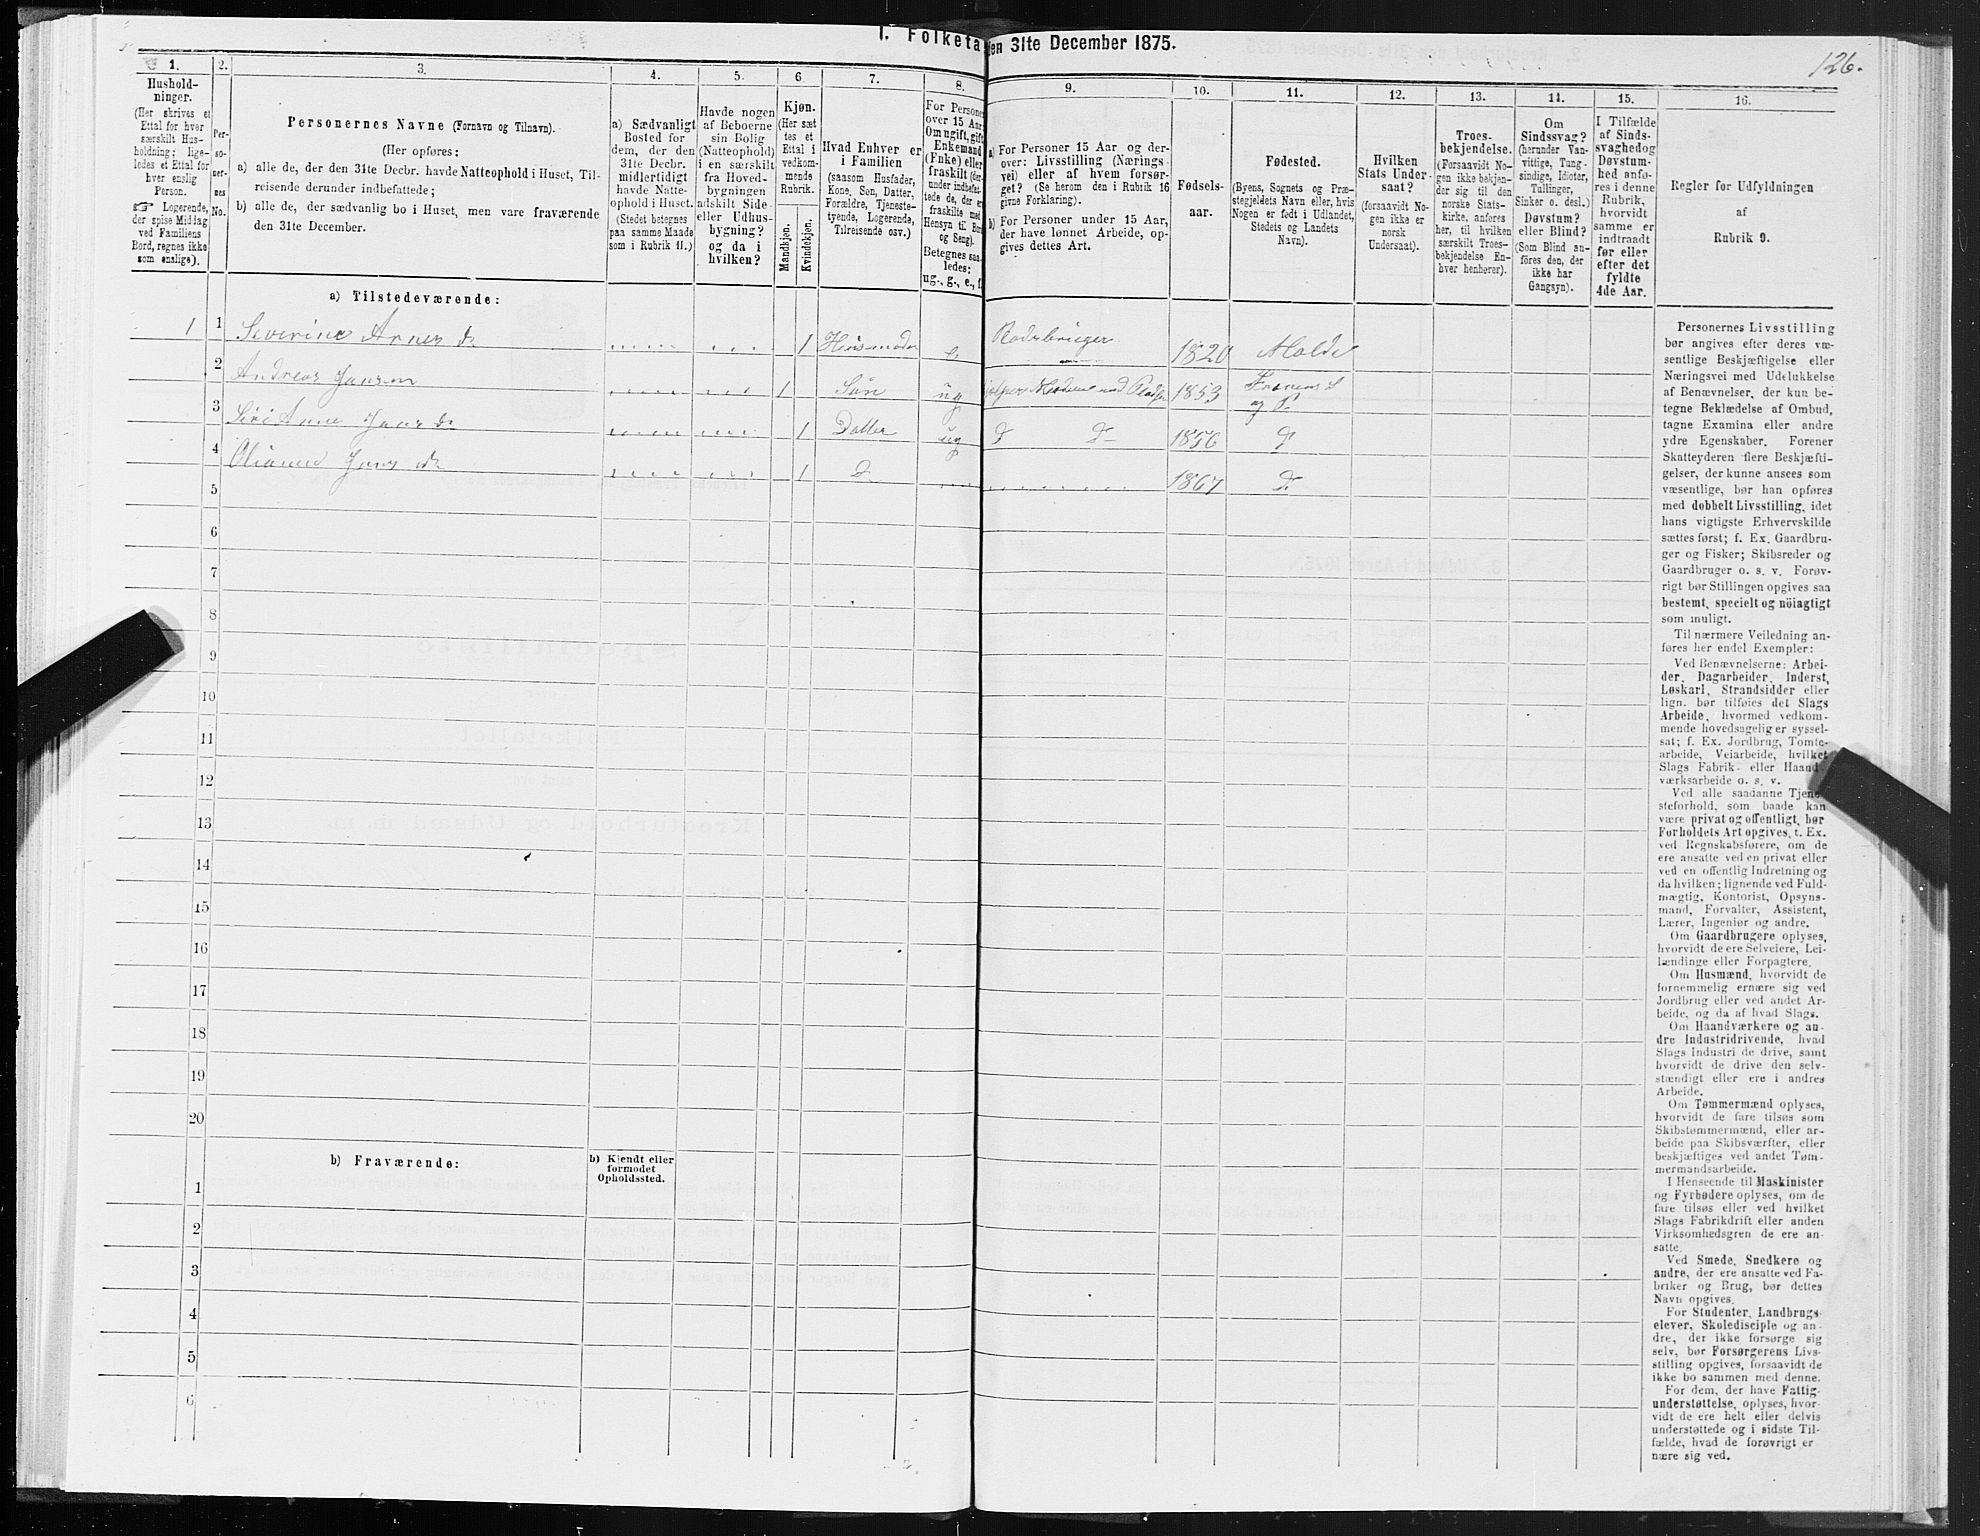 I. Folketa
den 31te December 1875.
126.
1.
Hushold-
ninger.
(Her skrives et
Ettal for hver
særskilt Hus-
holdning; lige-
ledes et Ettal for
hver enslig
Person.
☞ Logerende,
der spise Middag
ved Familiens
Bord, regnes ikke
som enslige).
2.
Per-
so-
ner-
nes
No.
3.
Personernes Navne (Fornavn og Tilnavn).
(Her opføres:
a) alle de, der den 31te Decbr. havde Natteophold i Huset, Til-
reisende derunder indbefattede;
b) alle de, der sædvanlig bo i Huset, men vare fraværende
den 31te December.
4.
a) Sædvanligt
Bosted for
dem, der den
31te Decbr.
midlertidigt
havde Natte-
ophold i Huset.
(Stedet betegnes
paa samme Maade
som i Rubrik 11.)
5.
Havde nogen
af Beboerne
sin Bolig
(Natteophold)
i en særskilt
fra Hoved-
bygningen
adskilt Side-
eller Udhus-
bygning?
og da i
hvilken?
6
Kjøn.
(Her sæt
tes et
Ettal i
vedkom-
mende
Rubrik.
Mandkjøn.
Kvindekjøn.
7.
Hvad Enhver er
i Familien
(saasom Husfader,
Kone, Søn, Datter,
Forældre, Tjeneste-
tyende, Logerende,
Tilreisende osv.)
8.
For Persone
over 15 Aar
Om ugift, gift
Enkemand
(Enke) eller
fraskilt (der-
under indbefat-
tede de, der er
fraskilte med
Hensyn til Bord
og Seng).
Betegnes saa-
ledes:
ug., g., e., f.
9.
a) For Personer 15 Aar og der-
over: Livsstilling (Nærings
vei) eller af hvem forsør-
get? (Se herom den i Rubrik 16
givne Forklaring).
b) For Personer under 15 Aar,
der have lønnet Arbeide, op-
gives dettes Art.
10.
Fødsels-
aar.
11.
Fødested.
(Byens, Sognets og Præ-
stegjeldets Navn eller, hvis
Nogen er født i Udlandet,
Stedets og Landets
Navn).
12.
Hvilken
Stats Under-
saat?
(forsaavidt No-
gen ikke er
norsk
Undersaat).
13.
Troes-
bekjendelse.
(Forsaavidt No-
gen ikke bekjen-
der sig til den
norske Stats-
kirke, anføres
her, til hvilken
særskilt Troes-
bekjendelse En-
hver henhører).
14.
Om
Sindssvag?
(herunder Van-
vittige, Tung-
sindige, Idioter,
Tullinger,
Sinker o. desl.)
Døvstum?
eller Blind?
(Som Blind an-
føres den, der
ikke har
Gangsyn).
15.
I Tilfælde
af Sinds-
svaghed og
Døvstum-
hed anfø-
res i denne
Rubrik,
hvorvidt
samme er
indtraadt
før eller
efter det
fyldte
4de Aar.
16.
Regler for Udfyldningen
af
Rubrik 9.
a) Tilstedeværende:
1 1 Severine Arnes dr 1 Husmoder e Baderbrüger 1820 Molde
2 Andreas Jansen 1 Søn ug 1853
og P.
3 Siri Anne Jans dr 1 Datter ug D D 1856 D
4 Oliane Jans dr 1 D 1867 D
5
6
7
8
9
10
11
12
13
14
15
16
17
18
19
20
b) Fraværende:
b) Kjendt eller
formodet
Opholdssted.
1
2
3
4
5
6
Personernes Livsstilling
bør angives efter deres væ-
sentlige Beskjæftigelse eller
Næringsvei med Udelukkelse
af Benævnelser, der kun be-
tegne Beklædelse af Ombud,
tagne Examina eller andre
ydre Egenskaber. Forener
Skatteyderen flere Beskjæfti-
gelser, der kunne ansees som
væsentlige, bør han opføres
med dobbelt Livsstilling, idet
hans vigtigste Erhvervskilde
sættes først; f. Ex. Gaardbru-
ger og Fisker; Skibsreder og
Gaardbruger o. s. v. Forøv-
rigt bør Stillingen opgives saa
bestemt, specielt og nöiagtigt
som muligt.
Til nærmere Veiledning an-
føres her endel Exempler:
Ved Benævnelserne: Arbei-
der, Dagarbeider, Inderst,
Løskarl, Strandsidder eller
lign. bør tilføies det Slags
Arbeide, hvormed vedkom-
mende hovedsagelig er syssel-
sat; f. Ex. Jordbrug, Tomte-
arbeide, Veiarbeide, hvilket
Slags Fabrik- eller Haand-
værksarbeide o. s. v.
Ved alle saadanne Tjene-
steforhold, som baade kan
være privat og offentligt, bør
Forholdets Art opgives, t. Ex.
ved Regnskabsførere, om de
ere ansatte ved en privat eller
ved en offentlig Indretning og
da hvilken; lignende ved Fuld-
mægtig, Kontorist, Opsyns-
mand, Forvalter, Assistent,
Lærer, Ingeniør og andre.
Om Gaardbrugere oplyses,
hvorvidt de ere Selveiere, Lei-
lændinge eller Forpagtere.
Om Husmænd, hvorvidt de
fornemmelig ernære sig ved
Jordbrug eller ved andet Ar-
beide, og da af hvad Slags.
Om Haandværkere og an-
dre Industridrivende, hvad
Slags Industri de drive, samt
hvorvidt de drive den selv-
stændigt eller ere i andres
Arbeide.
Om Tømmermænd oplyses,
hvorvidt de fare tilsøs som
Skibstømmermænd, eller ar-
beide paa Skibsværfter, eller
beskjæftiges ved andet Tøm-
mermandsarbeide.
I Henseende til Maskinister
og Fyrbødere oplyses, om de
fare tilsøs eller ved hvilket
Slags Fabrikdrift eller anden
Virksomhedsgren de ere an-
satte.
Ved Smede, Snedkere og
andre, der ere ansatte ved Fa-
briker og Brug, bør dettes
Navn opgives.
For Studenter, Landbrugs-
elever, Skoledisciple og an-
dre, der ikke forsørge sig
selv, bør Forsørgerens Livs-
stilling opgives, forsaavidt de
ikke bo sammen med denne.
For dem, der have Fattig-
understøttelse, oplyses, hvor-
vidt de ere helt eller delvis
understøttede og i sidste Til-
fælde, hvad de forøvrigt er
nære sig ved.